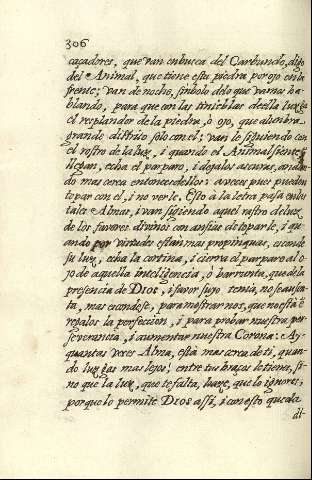 306
caçadores, que van en busca del Carbunclo, digo
del Animal, que tiene esta piedra por ojo en la
frente; van de noche, simbolo de lo que vamos ha-
blando, para que con las tinieblas de ella luzga
el resplandor de la piedra, ò ojo, que alumbra
grande distrito solo con el; van le siguiendo con
el rostro de la luz, i quando el Animal siente q̃
llegan, echa el parparo, i dejalos ascuras, andan-
do mas cerca entonces dellos: aveces pues pueden
topar con el, i no verle. Esto à la letra pasa en los
tales Almas, i van sigiendo aquel rastro de luz
de los favores divinos con ansias de toparle, i qu-
ando por virtudes estàn mas propinquas, esconde
su luz, echa la cortina, i cierra el parparo al o-
jo de aquella inteligencia, ò barrunta, que de la
presencia de DIOS, i favor suyo tenia, no se ausen-
ta, mas escondese, para mostrarnos, que no està ẽ
regalos la perfeccion, i para probar nuestra per-
severancia, i aumentar nuestra Corona: Ay
quantas veces Alma, està mas cerca de ti, quan-
do luzgas mas lejos! entre tus braços le tienes, si-
no que la luz, que te falta, luze, que lo ignores;
porque lo permite DIOS assi, i con esto queda
di-